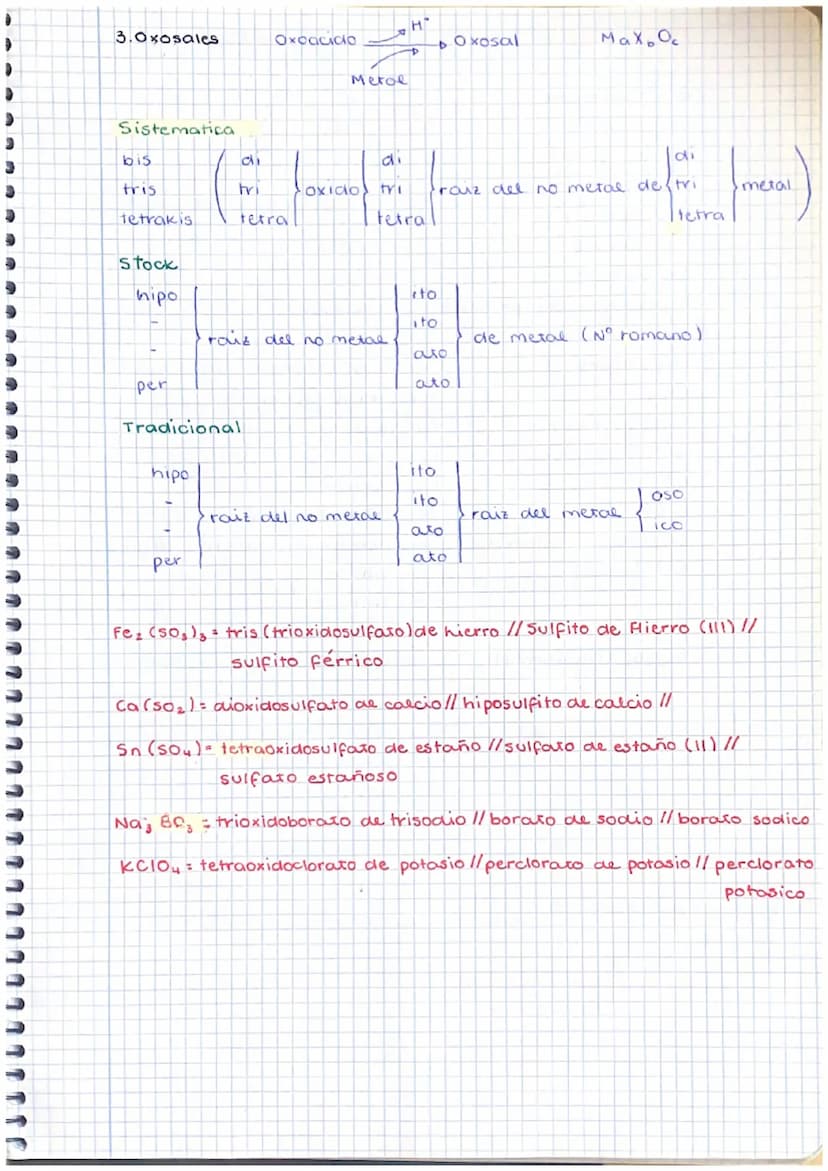 3. Oxosales Oxoácido H⁺ Oxosal MaXbOc
Metal
Sistematica
bis di di di
tris tri oxido tri raiz del no metal de tri metal
tetrakis tetra tetra tetra
Stock
hipo ito
- ito
raiz del no metal de metal (Nº romano)
- ato
per ato
Tradicional
hipo ito
- ito oso
raiz del no metal raiz del metal
- ato ico
per ato
Fe₂(SO₃)₃ = tris(trioxidosulfato)de hierro // Sulfito de Hierro (III) //
sulfito férrico
Ca(SO₂) = dioxidosulfato de calcio // hiposulfito de calcio //
Sn(SO₄) = tetraoxidosulfato de estaño // sulfato de estaño (II) //
sulfato estañoso
Na₃BO₃ = trioxidoborato de trisodio // borato de sodio // borato sodico
KClO₄ = tetraoxidoclorato de potasio // perclorato de potasio // perclorato
potasico